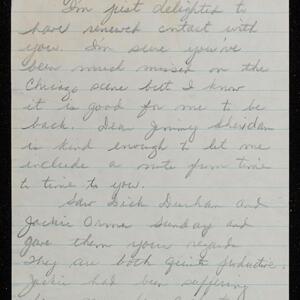 I'm just delighted to
have renewed contact with
you. I'm sure you've
been much missed on the
Chicago scene but I know
it is good for me to be
back. Dear Jimmy Sheridan
is kind enough to let me
include a note from time
to time to you.
Saw Dick Durham and
Jackie Ormes Sunday and
gave them your regards
They are both quite productive.
Jackie had been suffering